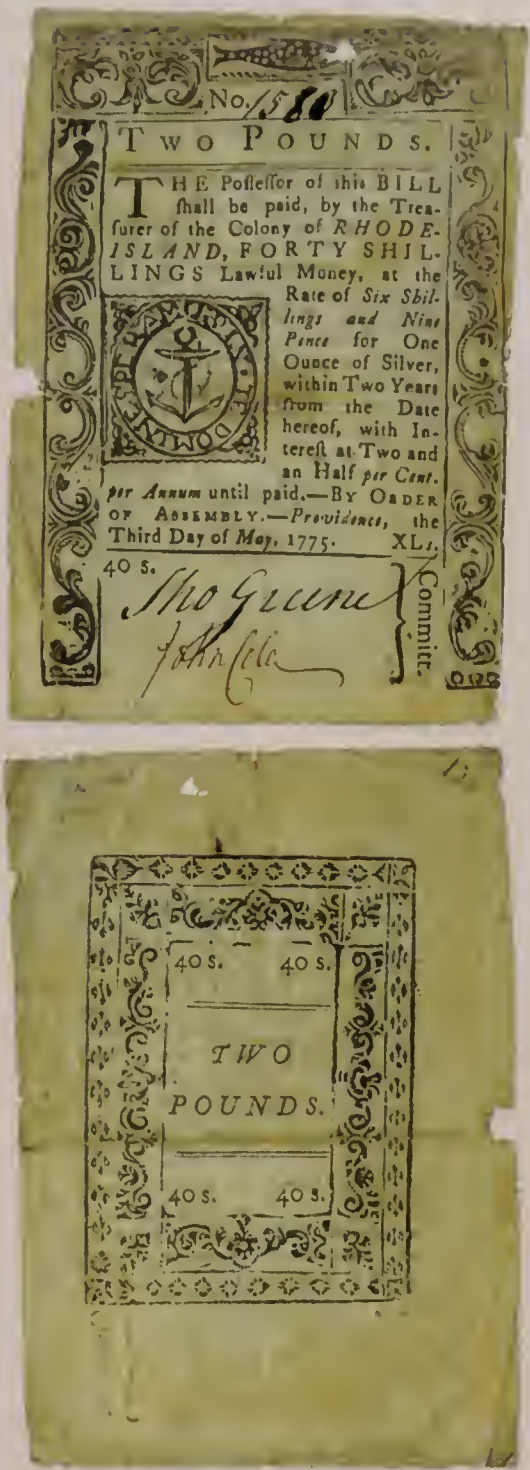 No. 1580
TWO POUNDS.
THE Poſſeſſor of this BILL
ſhall be paid, by the Trea-
ſurer of the Colony of RHODE-
ISLAND, FORTY SHIL-
LINGS Lawful Money, at the
Rate of Six Shil-
lings and Nine
Pence for One
Ounce of Silver,
within Two Years
from the Date
hereof, with In-
tereſt at Two and
an Half per Cent.
per Annum until paid.—BY ORDER
OF ASSEMBLY.—Providence, the
Third Day of May, 1775. XLs.
IN TE DOMINE SPERAMUS
40 s.
Tho Greene
John Cole
Committ.
40 s. 40 s.
TWO
POUNDS.
40 s. 40 s.